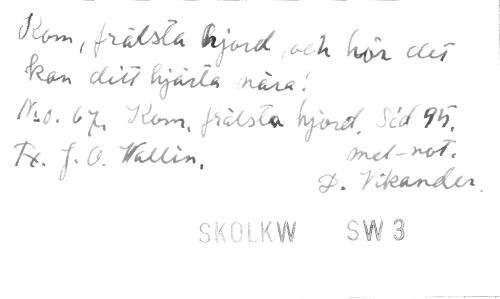 Kom, frälsta hjord, och hör det
kan ditt hjärta nära!
No. 67. Kom, frälsta hjord. Sid 95.
Tx. J. O. Wallin. mel-not.
D. Vikander.
SKOLKW SW 3